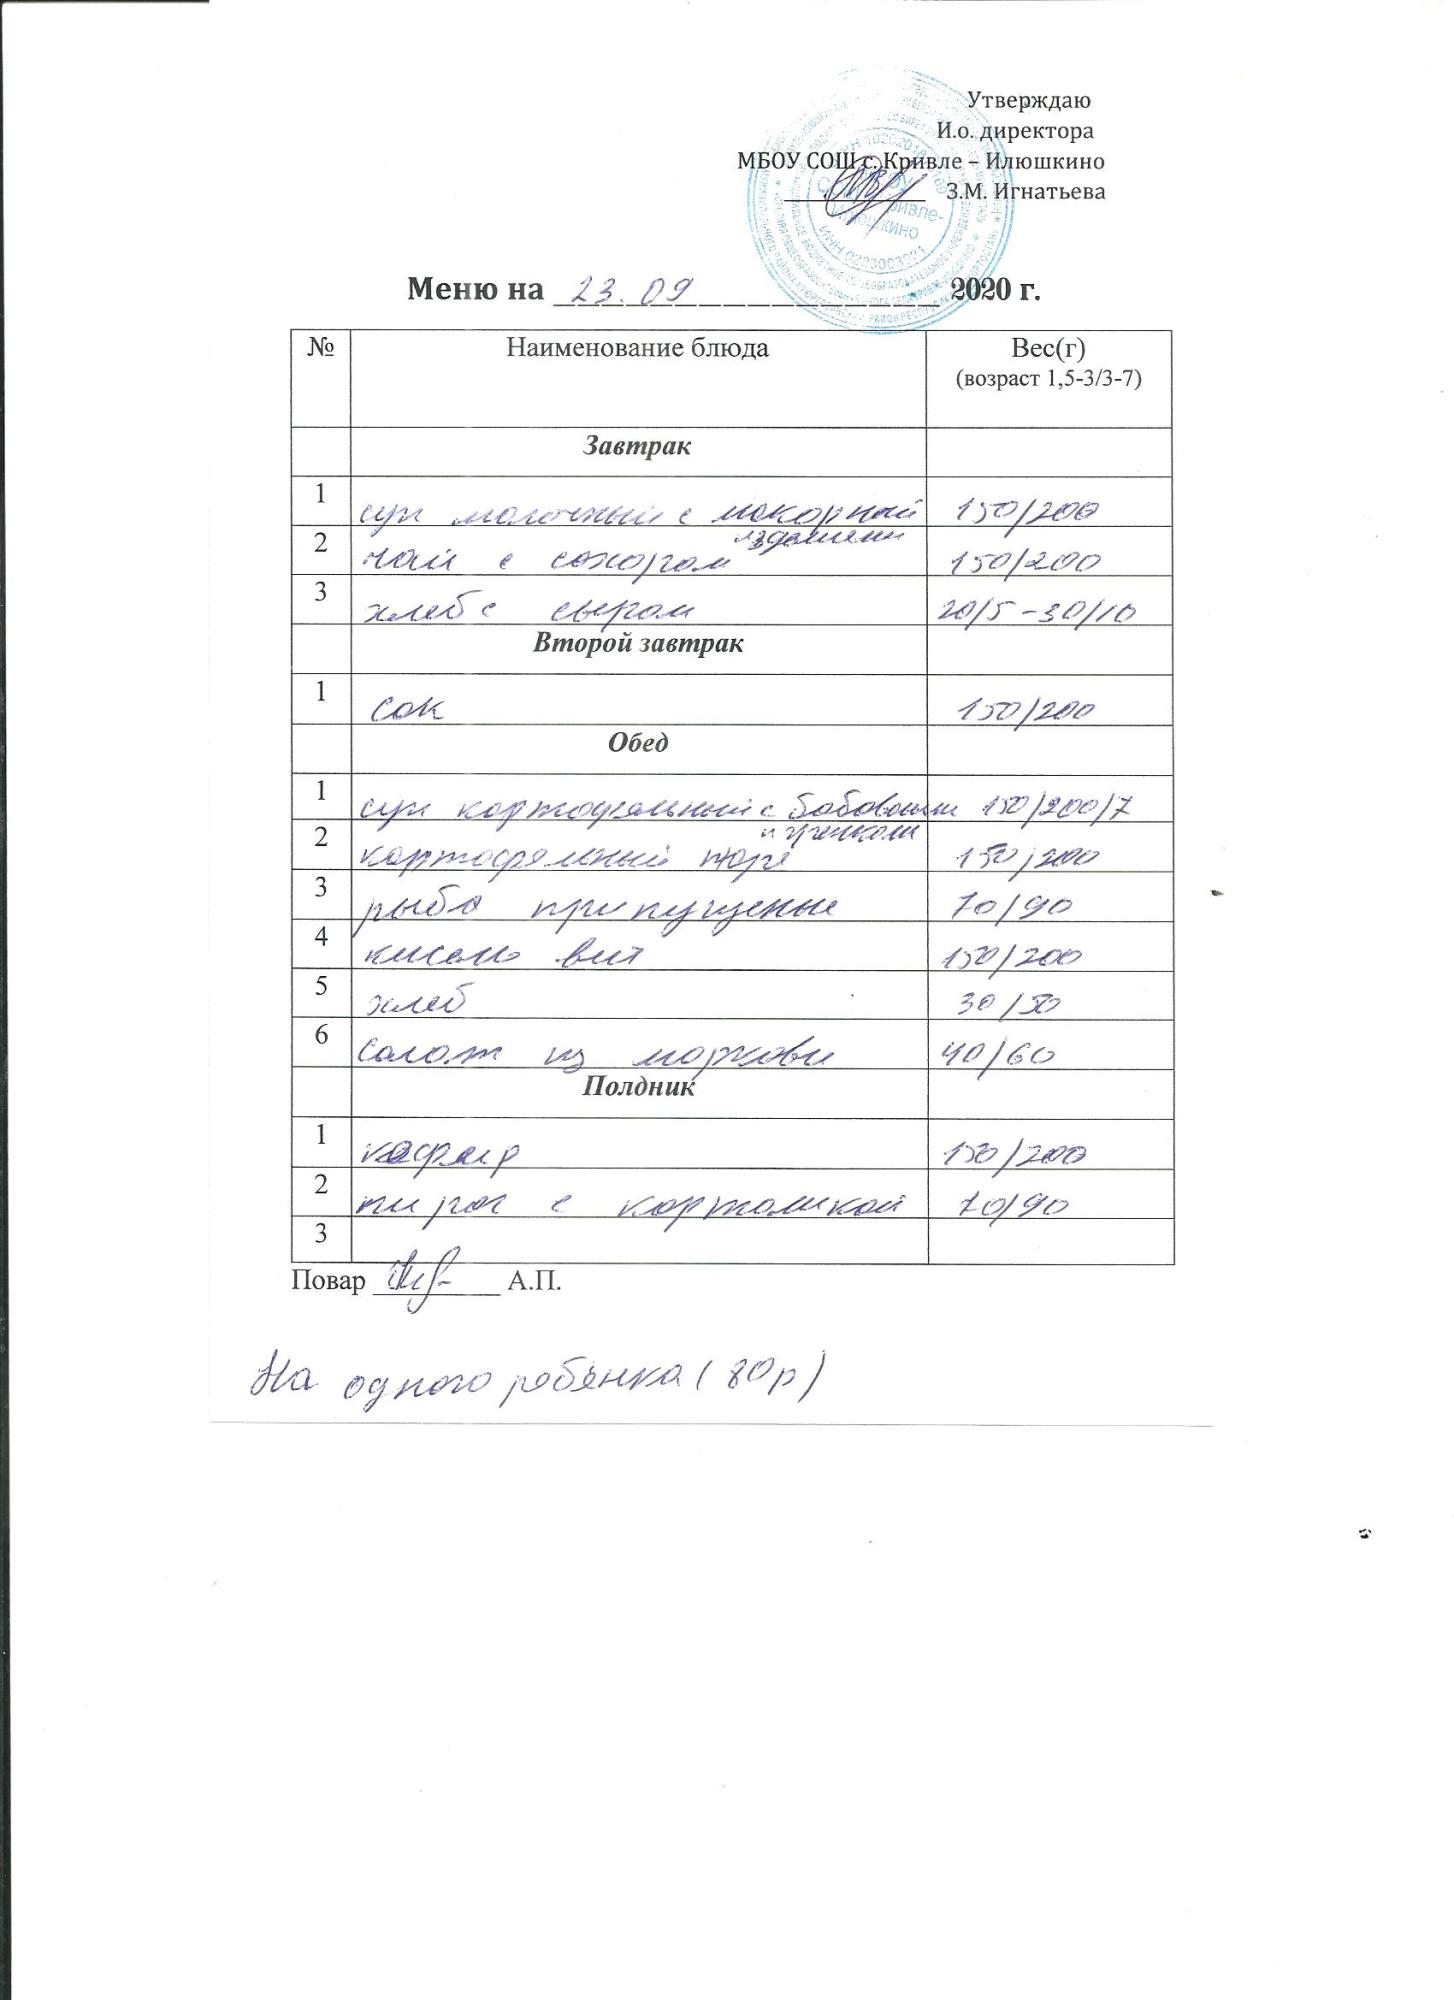 Утверждаю
И.о. директора
МБОУ СОШ с. Кривле – Илюшкино
З.М. Игнатьева
Меню на 23.09 2020 г.
№ Наименование блюда Вес(г)
(возраст 1,5-3/3-7)
Завтрак
1 суп молочный с макорный 150/200
изделиеми
2 чай с сахором 150/200
3 хлеб с сыром 20/5-30/10
Второй завтрак
1 сок 150/200
Обед
1 суп картофельный с бобовыми 150/200/7
и гренками
2 картофельный пюре 150/200
3 рыба припущеные 70/90
4 кисель вит 150/200
5 хлеб 30/50
6 салат из моркови 40/60
Полдник
1 кефир 150/200
2 пирог с картошкой 70/90
3
Повар А.П.
На одного ребёнка (80р)